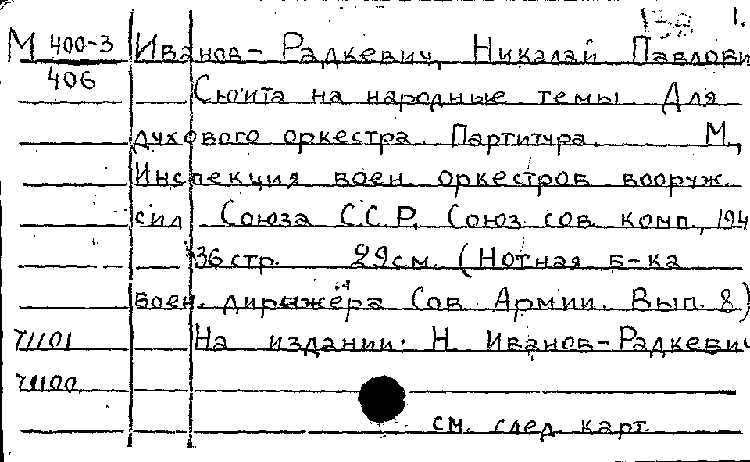 1.
М 400-3 Иванов-Радкевич, Николай Павлови
406
Сюита на народные темы Для
духового оркестра. Партитура. М.,
Инспекция воен. оркестров вооруж.
сил Союза С.С.Р. Союз сов. комп., 194
36 стр. 29 см. (Нотная б-ка
воен. дирижёра Сов. Армии. Вып. 8)
71101 На издании: Н. Иванов-Радкевич
71100
см. след. карт.